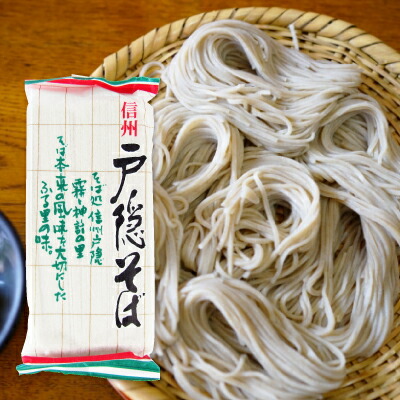 信州
戸隠そば
そば処・信州戸隠
霧と神話の里
そば本来の風味を大切にした
ふる里の味。